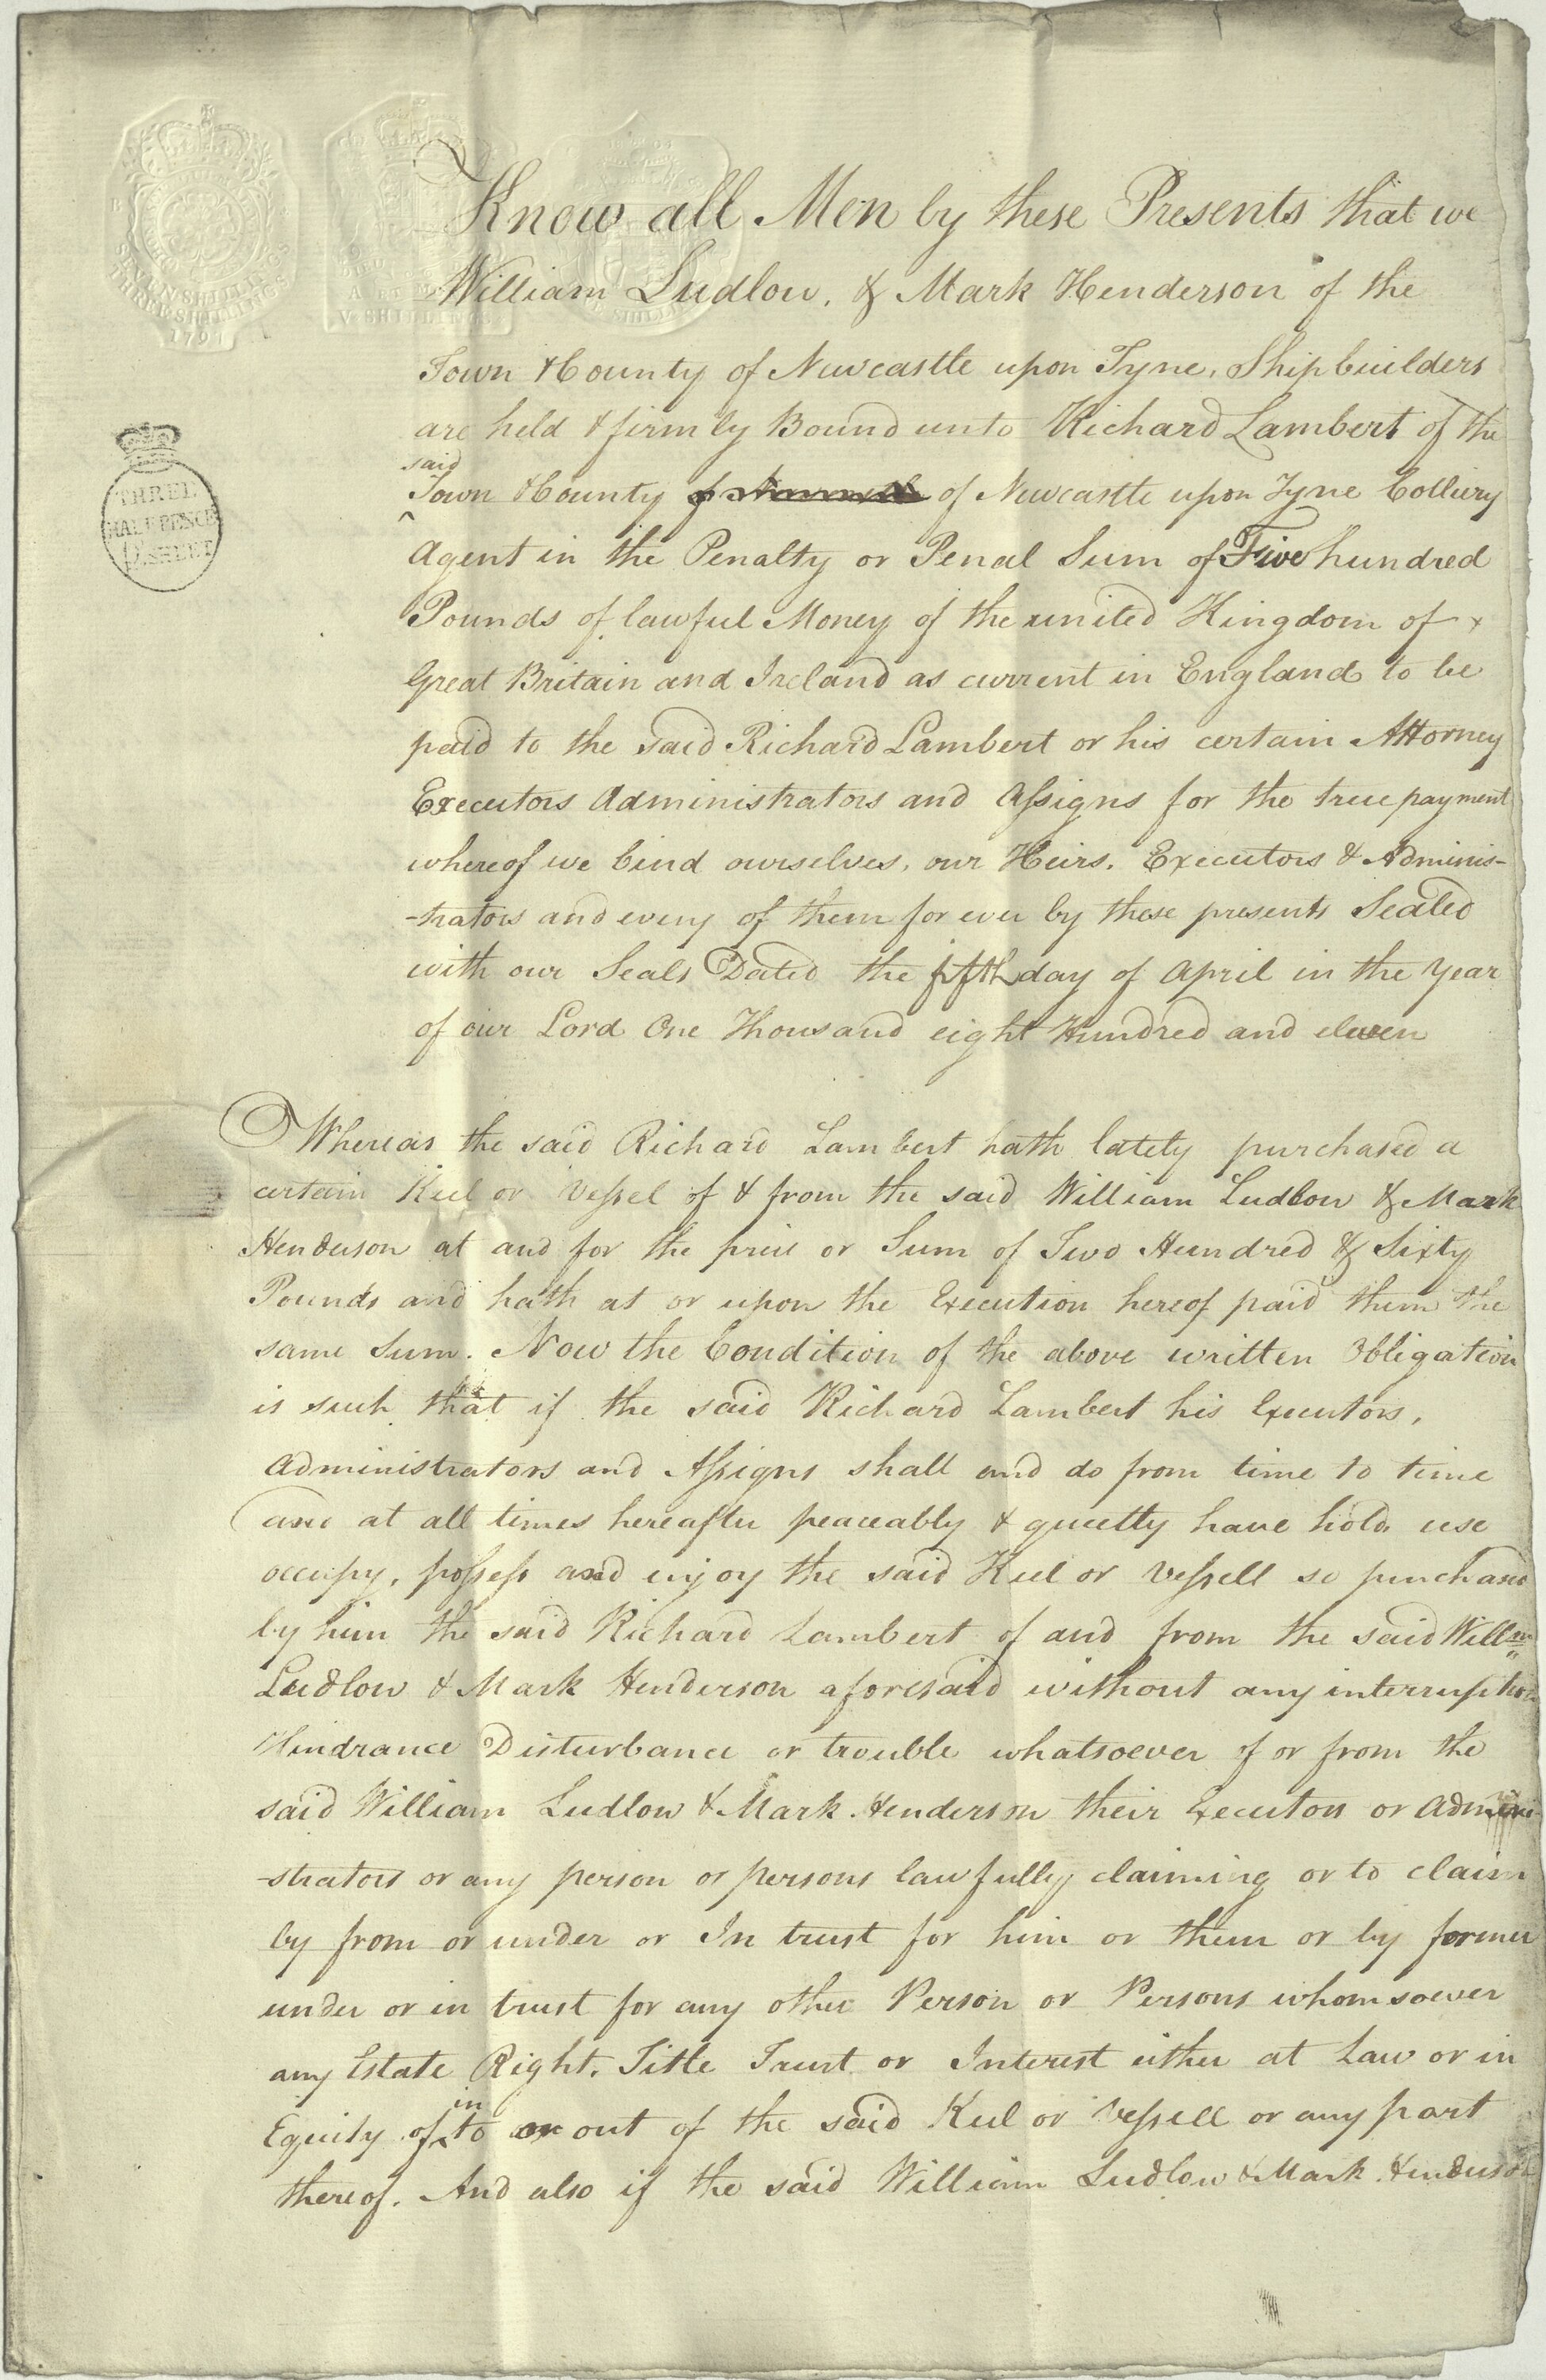 SEVEN SHILLINGS
THREE SHILLINGS
1797
V SHILLINGS
THREE
HALFPENCE
P. SHEET
Know all Men by these Presents that we
William Ludlow, & Mark Henderson of the
Town & County of Newcastle upon Tyne, Shipbuilders
are held & firmly Bound unto Richard Lambert of the
said
Town & County of Newcastle upon Tyne Colliery
Agent in the Penalty or Penal Sum of Five hundred
Pounds of lawful Money of the united Kingdom of x
Great Britain and Ireland as current in England to be
paid to the said Richard Lambert or his certain Attorney
Executors Administrators and Assigns for the true payment
whereof we bind ourselves, our Heirs, Executors & Adminis-
-trators and every of them for ever by these presents Sealed
with our Seals Dated the fifth day of April in the Year
of our Lord One Thousand eight Hundred and eleven
Whereas the said Richard Lambert hath lately purchased a
certain Keel or Vessel of & from the said William Ludlow & Mark
Henderson at and for the price or Sum of Two Hundred & Sixty
Pounds and hath at or upon the Execution hereof paid them the
same Sum. Now the Condition of the above written Obligation
is such that if the said Richard Lambert his Executors,
Administrators and Assigns shall and do from time to time
and at all times hereafter peaceably & quietly have hold, use
occupy, possess and enjoy the said Keel or Vessell so purchased
by him the said Richard Lambert of and from the said Willm
Ludlow & Mark Henderson aforesaid without any interruption
Hindrance Disturbance or trouble whatsoever of or from the
said William Ludlow & Mark Henderson their Executors or Admini-
-strators or any person or persons lawfully claiming or to claim
by from or under or In trust for him or them or by former
under or in trust for any other Person or Persons whomsoever
any Estate Right, Title Trust or Interest either at Law or in
in
Equity of, to or out of the said Keel or Vessell or any part
thereof. And also if the said William Ludlow & Mark Henderson